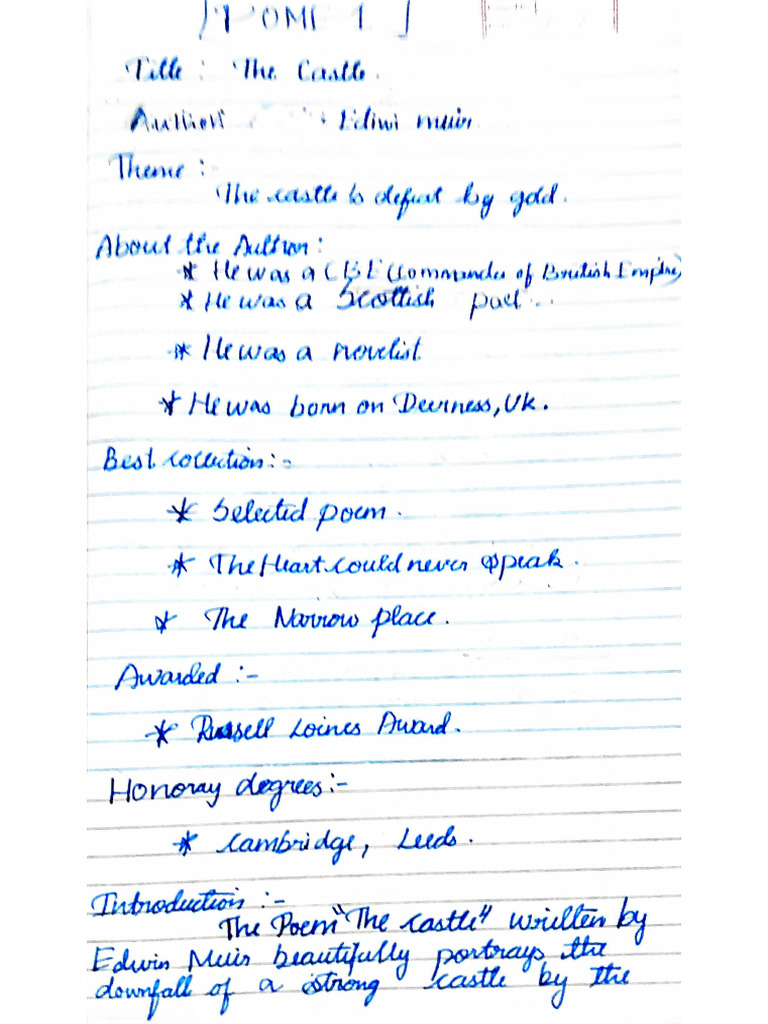 [POME 1]
Title : The Castle.
Author : Ediwi muir.
Theme :-
The castle is defeat by gold.
About the Author :
* He was a CBE (Commander of British Empire)
* He was a Scottish poet...
* He was a novelist.
* He was born on Deerness, UK.
Best collection :-
* Selected poem.
* The Heart could never speak.
* The Narrow place.
Awarded :-
* Russell Loines Award.
Honoray degrees :-
* Cambridge, Leeds.
Introduction :-
The Poem "The castle" written by
Edwin Muir beautifully portrays the
downfall of a strong castle by the